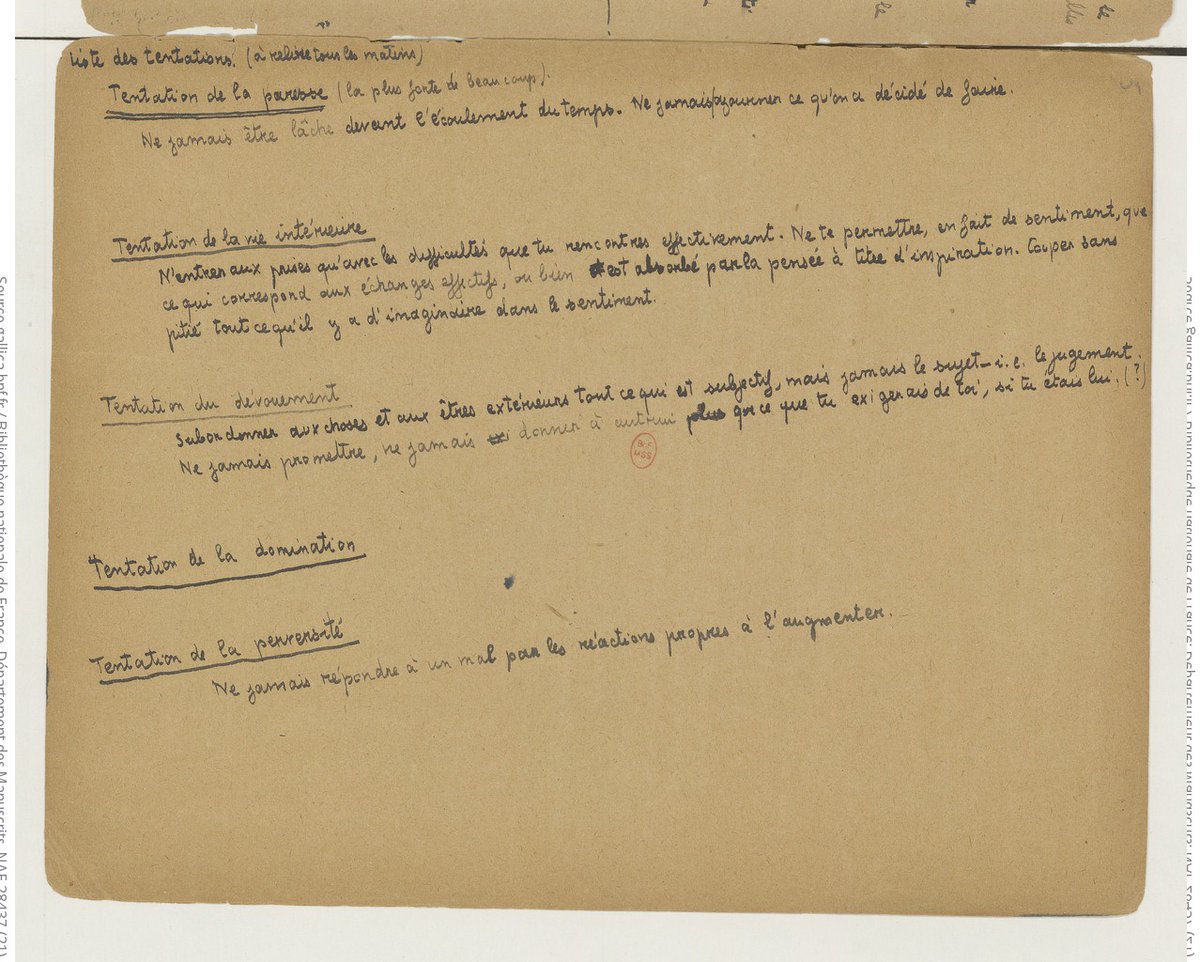 le
lles
le
Liste des tentations. (à relire tous les matins)
Tentation de la paresse (la plus forte de beaucoup).
Ne jamais être lâche devant l'écoulement du temps. Ne jamais ajourner ce qu'on a décidé de faire.
Tentation de la vie intérieure
N'entrer aux prises qu'avec les difficultés que tu rencontres effectivement. Ne te permettre, en fait de sentiment, que
ce qui correspond aux échanges effectifs, ou bien est absorbé par la pensée à titre d'inspiration. Couper sans
pitié tout ce qu'il y a d'imaginaire dans le sentiment.
Tentation du dévouement
Subordonner aux choses et aux êtres extérieurs tout ce qui est subjectif, mais jamais le sujet – i.e. le jugement.
Ne jamais promettre, ne jamais donner à autrui plus que ce que tu exigerais de toi, si tu étais lui. (?)
BNF
MSS
Tentation de la domination
Tentation de la perversité
Ne jamais répondre à un mal par les réactions propres à l'augmenter.
Source gallica.bnf.fr / Bibliothèque nationale de France. Département des Manuscrits. NAF 28437 (21)
Source gallica.bnf.fr / Bibliothèque nationale de France. Département des Manuscrits. NAF 28437 (21)